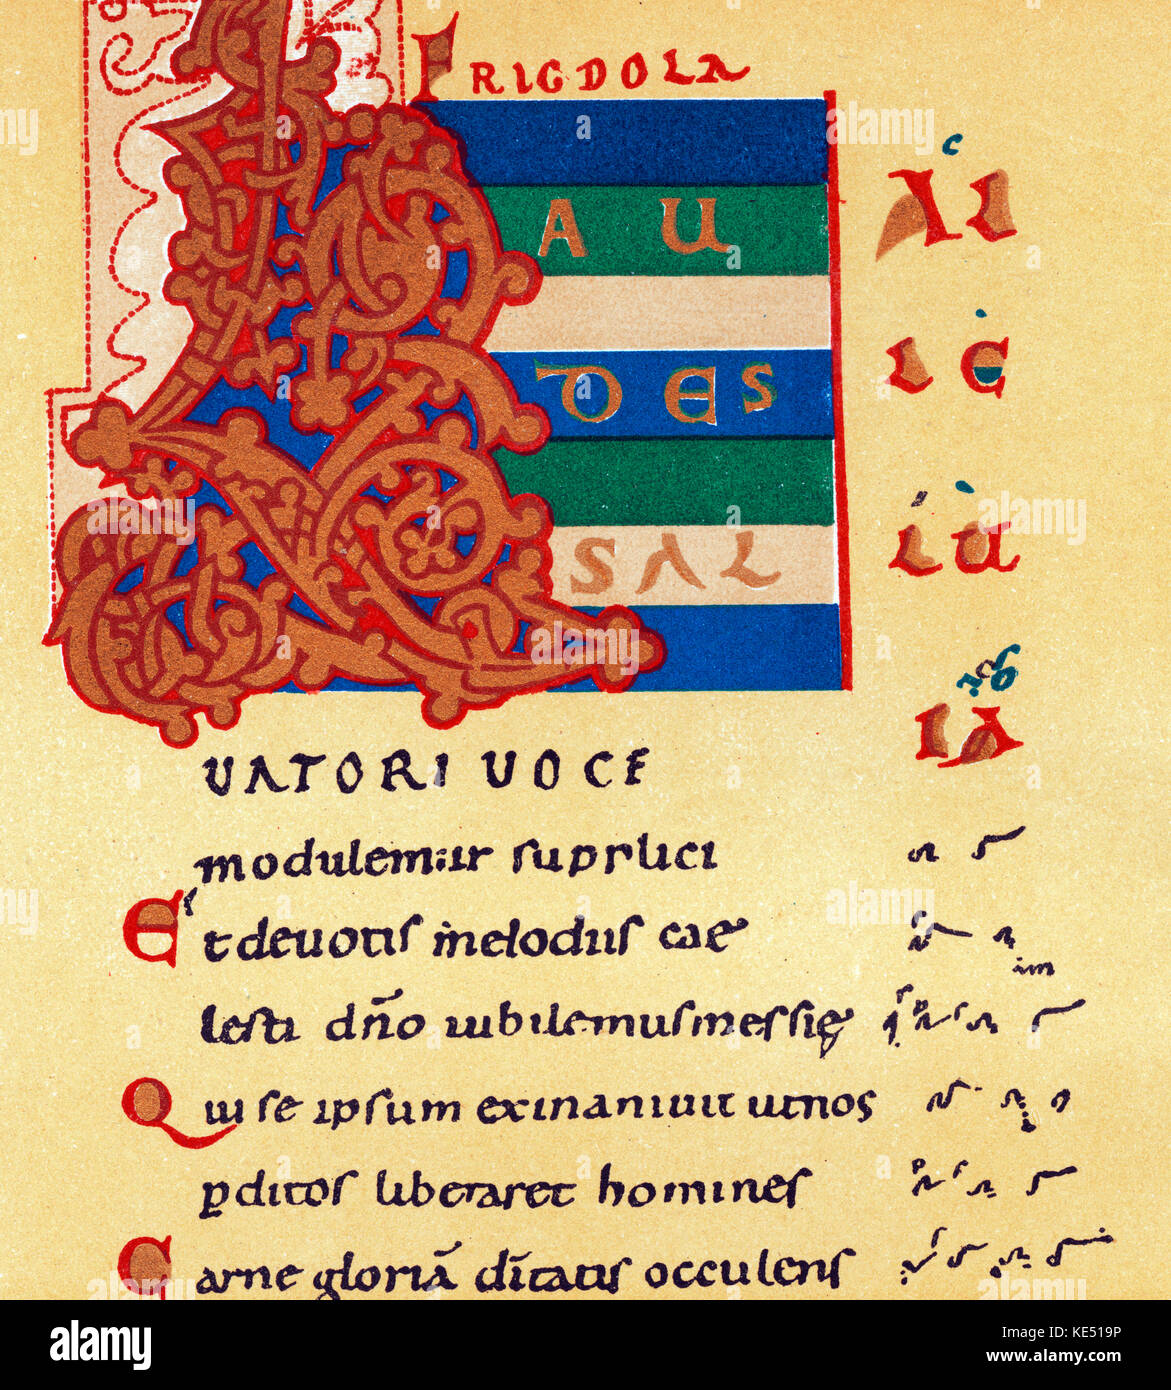 FRIGDOLA
LAUDES
SAL
UATORI UOCE
modulemur supplici
Et deuotis melodiis cae
lesti dño iubilemus messię
Qui se ipsum exinaniuit ut nos
pditos liberaret homines
Carne gloriā dītatis occulens
AL
LE
LU
IA
im
alamy
Image ID: KE519P
www.alamy.com